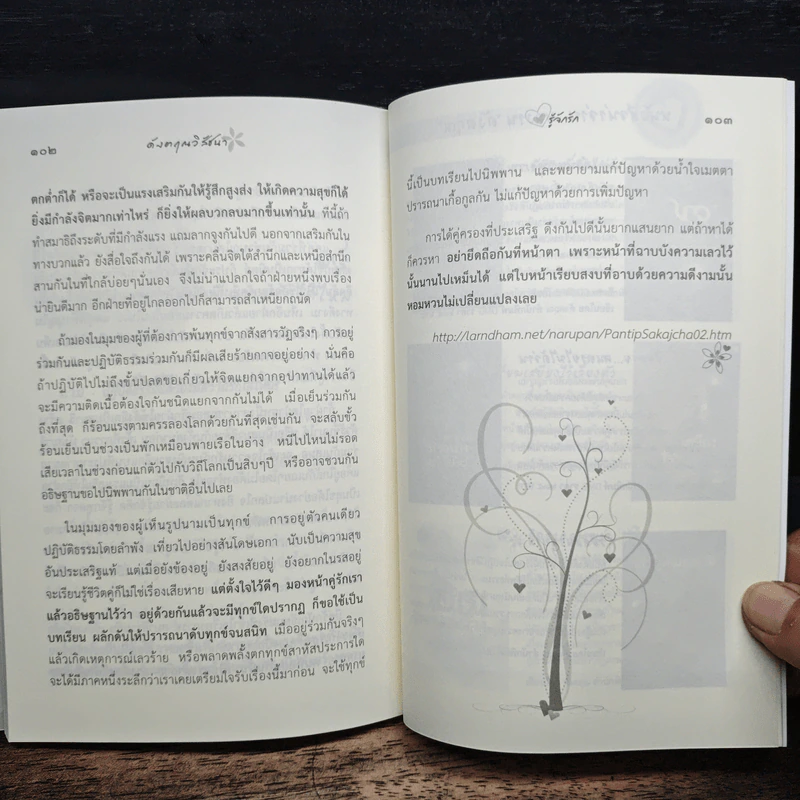 ๑๐๒
ดังตฤณวิสัชนา
ตกต่ำก็ได้ หรือจะเป็นแรงเสริมกันให้รู้สึกสูงส่ง ให้เกิดความสุขก็ได้
ยิ่งมีกำลังจิตมากเท่าไหร่ ก็ยิ่งให้ผลบวกลบมากขึ้นเท่านั้น ทีนี้ถ้า
ทำสมาธิถึงระดับที่มีกำลังแรง แถมลากจูงกันไปดี นอกจากเสริมกันใน
ทางบวกแล้ว ยังสื่อใจถึงกันได้ เพราะคลื่นจิตใต้สำนึกและเหนือสำนึก
สานกันในที่ใกล้บ่อยๆนั่นเอง จึงไม่น่าแปลกใจถ้าฝ่ายหนึ่งพบเรื่อง
น่ายินดีมาก อีกฝ่ายที่อยู่ไกลออกไปก็สามารถสำเหนียกถนัด
ถ้ามองในมุมของผู้ที่ต้องการพ้นทุกข์จากสังสารวัฏจริงๆ การอยู่
ร่วมกันและปฏิบัติธรรมร่วมกันก็มีผลเสียร้ายกาจอยู่อย่าง นั่นคือ
ถ้าปฏิบัติไปไม่ถึงขั้นปลดขอเกี่ยวให้จิตแยกจากอุปาทานได้แล้ว
จะมีความติดเนื้อต้องใจกันชนิดแยกจากกันไม่ได้ เมื่อเย็นร่วมกัน
ถึงที่สุด ก็ร้อนแรงตามครรลองโลกด้วยกันที่สุดเช่นกัน จะสลับขั้ว
ร้อนเย็นเป็นช่วงเป็นพักเหมือนพายเรือในอ่าง หนีไปไหนไม่รอด
เสียเวลาในช่วงก่อนแก่ตัวไปกับวิถีโลกเป็นสิบๆปี หรืออาจชวนกัน
อธิษฐานขอไปนิพพานกันในชาติอื่นไปเลย
ในมุมมองของผู้เห็นรูปนามเป็นทุกข์ การอยู่ตัวคนเดียว
ปฏิบัติธรรมโดยลำพัง เที่ยวไปอย่างสันโดษเอกา นับเป็นความสุข
อันประเสริฐแท้ แต่เมื่อยังข้องอยู่ ยังสงสัยอยู่ ยังอยากในรสอยู่
จะเรียนรู้ชีวิตคู่ก็ไม่ใช่เรื่องเสียหาย แต่ตั้งใจไว้ดีๆ มองหน้าคู่รักเรา
แล้วอธิษฐานไว้ว่า อยู่ด้วยกันแล้วจะมีทุกข์ใดปรากฏ ก็ขอใช้เป็น
บทเรียน ผลักดันให้ปรารถนาดับทุกข์จนสนิท เมื่ออยู่ร่วมกันจริงๆ
แล้วเกิดเหตุการณ์เลวร้าย หรือพลาดพลั้งตกทุกข์สาหัสประการใด
จะได้มีภาคหนึ่งระลึกว่าเราเคยเตรียมใจรับเรื่องนี้มาก่อน จะใช้ทุกข์
รู้จักรัก
๑๐๓
นี้เป็นบทเรียนไปนิพพาน และพยายามแก้ปัญหาด้วยน้ำใจเมตตา
ปรารถนาเกื้อกูลกัน ไม่แก้ปัญหาด้วยการเพิ่มปัญหา
การได้คู่ครองที่ประเสริฐ ดึงกันไปดีนั้นยากแสนยาก แต่ถ้าหาได้
ก็ควรหา อย่ายึดถือกันที่หน้าตา เพราะหน้าที่ฉาบบังความเลวไว้
นั้นนานไปเหม็นได้ แต่ใบหน้าเรียบสงบที่อาบด้วยความดีงามนั้น
หอมหวนไม่เปลี่ยนแปลงเลย
http://larndham.net/narupan/PantipSakajcha02.htm